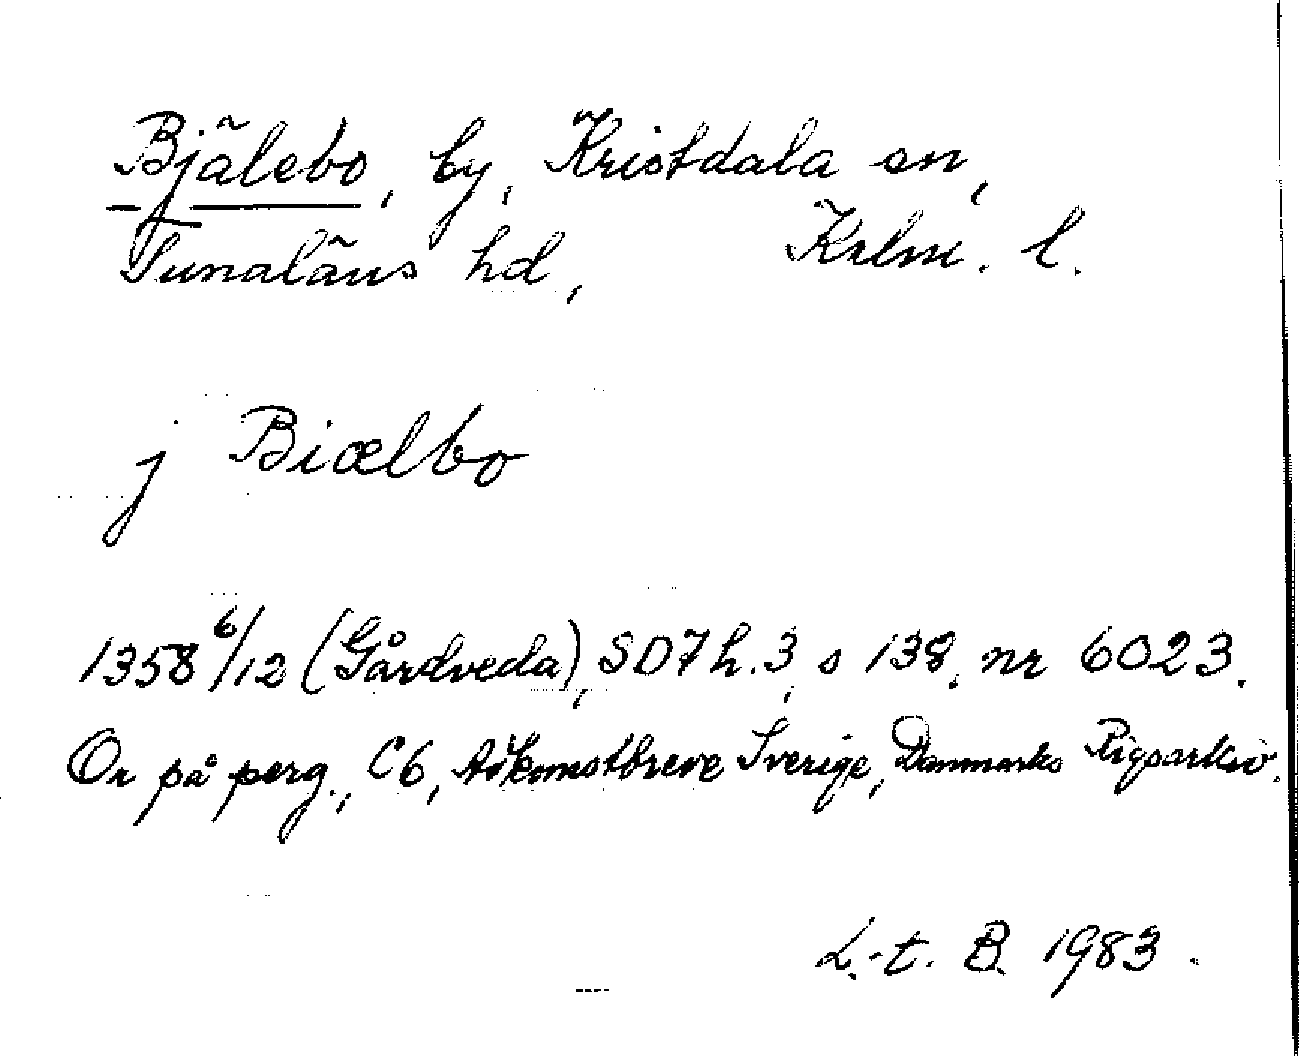 Bjälebo, by, Kristdala sn,
Tunaläns hd, Kalm. l.
j Biælbo
1358 6/12 (Gårdveda), SD7 h. 3, s 138, nr 6023.
Or på perg., C6, Adkomstbreve Sverige, Danmarks Rigsarkiv.
L.-t. B. 1983.